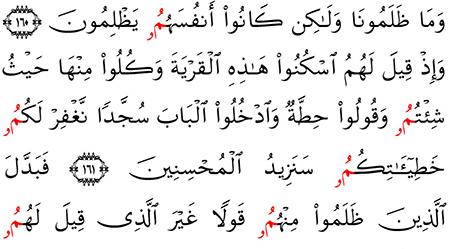 وَمَا ظَلَمُونَا وَلَٰكِن كَانُوٓاْ أَنفُسَهُمُۥ يَظْلِمُونَ ١٦٠
وَإِذْ قِيلَ لَهُمُ ٱسْكُنُواْ هَٰذِهِ ٱلْقَرْيَةَ وَكُلُواْ مِنْهَا حَيْثُ
شِئْتُمُۥ وَقُولُواْ حِطَّةٌ وَٱدْخُلُواْ ٱلْبَابَ سُجَّدًا نَّغْفِرْ لَكُمُۥ
خَطِيٓـَٰٔتِكُمُۥ سَنَزِيدُ ٱلْمُحْسِنِينَ ١٦١ فَبَدَّلَ
ٱلَّذِينَ ظَلَمُواْ مِنْهُمُۥ قَوْلًا غَيْرَ ٱلَّذِى قِيلَ لَهُمُۥ